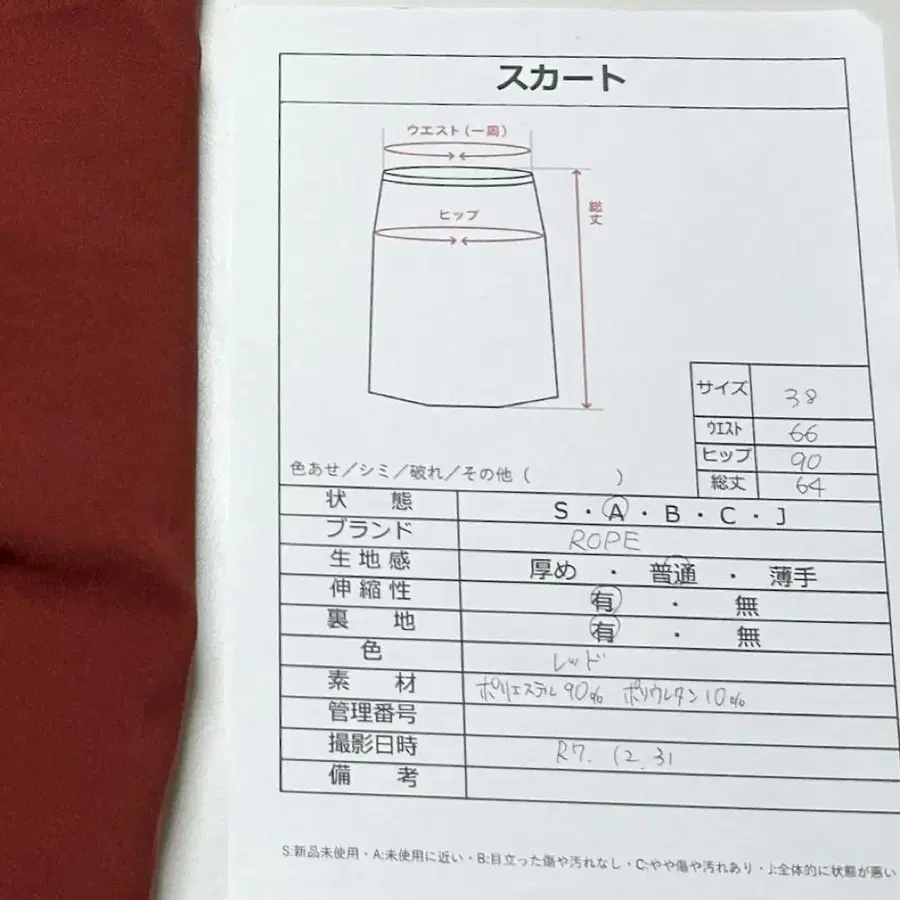 スカート
ウエスト(一周)
ヒップ
総丈
サイズ 38
ウエスト 66
ヒップ 90
総丈 64
色あせ／シミ／破れ／その他（　　　　）
状態 S・A・B・C・J
ブランド ROPE
生地感 厚め・普通・薄手
伸縮性 有・無
裏地 有・無
色 レッド
素材 ポリエステル90% ポリウレタン10%
管理番号
撮影日時 R7.12.31
備考
S:新品未使用・A:未使用に近い・B:目立った傷や汚れなし・C:やや傷や汚れあり・J:全体的に状態が悪い